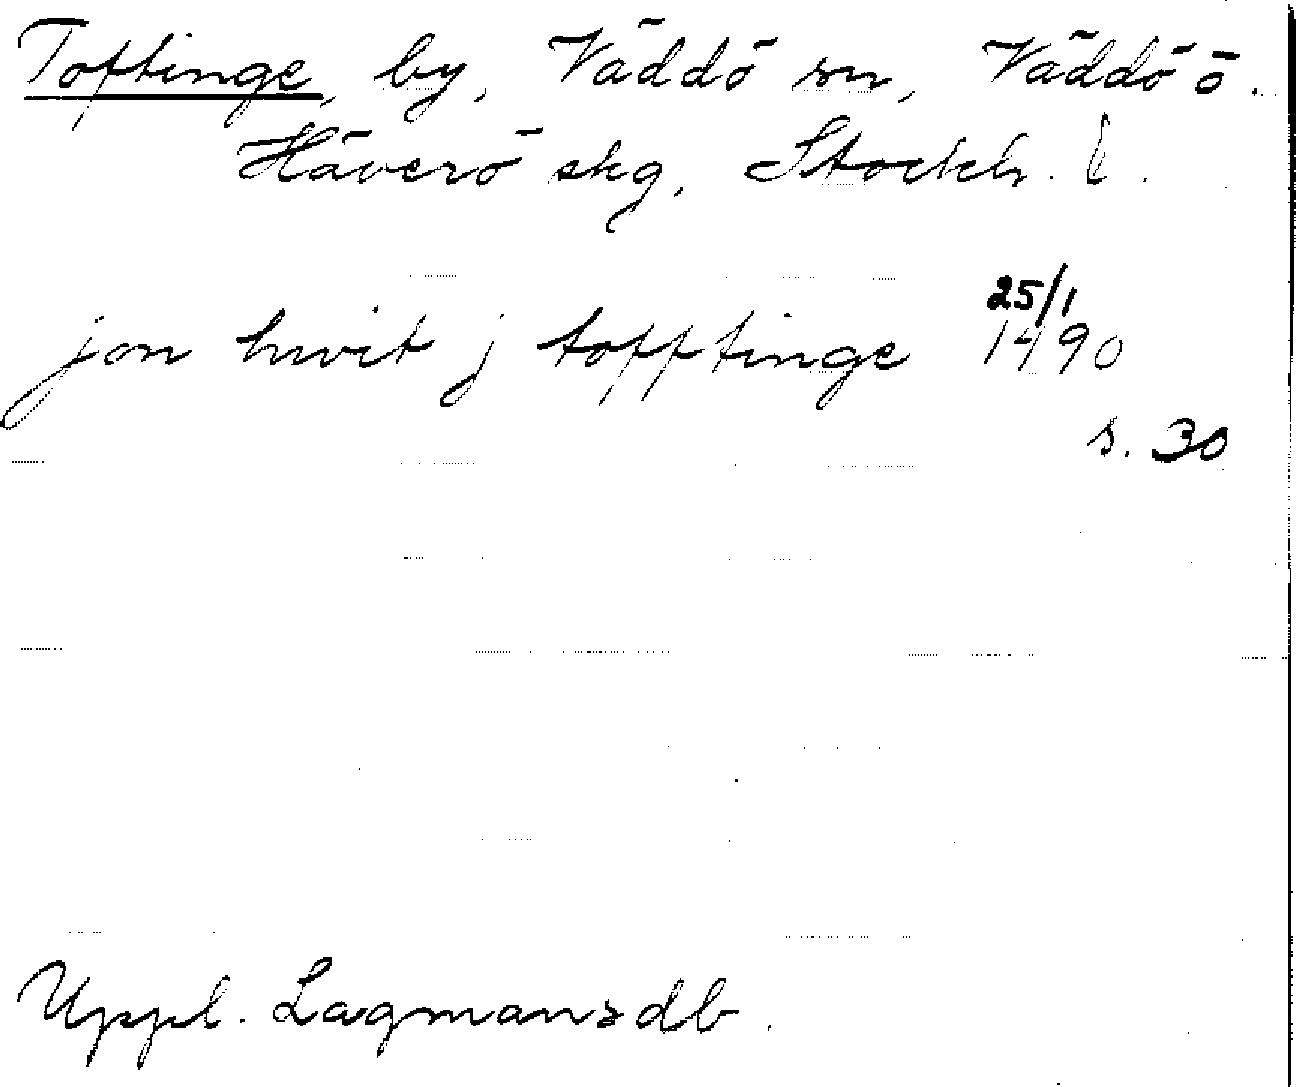 Toftinge, by, Väddö sn, Väddö ö.
Häverö skg, Stockh. l.
25/1
jon hwit j tofftinge 1490
s. 30
Uppl. Lagmansdb.